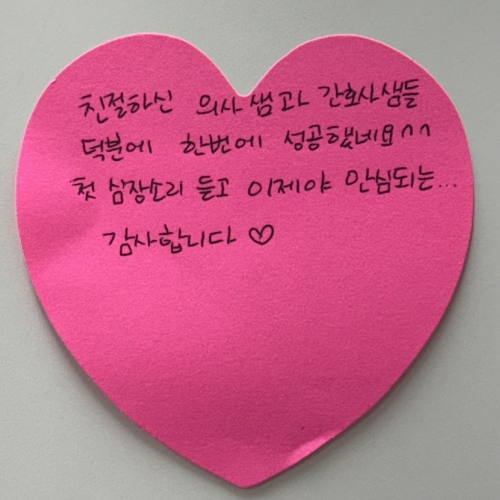 친절하신 의사샘과 간호사샘들
덕분에 한번에 성공했네요^^
첫 심장소리 듣고 이제야 안심되는...
감사합니다 ♡